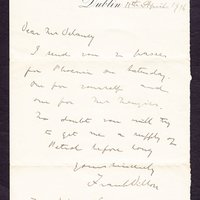 Dublin 11th April 1916
Dear Mr Delaney
I send you 2 passes
for Phoenix on Saturday.
One for yourself and
one for Mr
No doubt you will try
to get me a supply of
Petrol before long
Yours sincerely